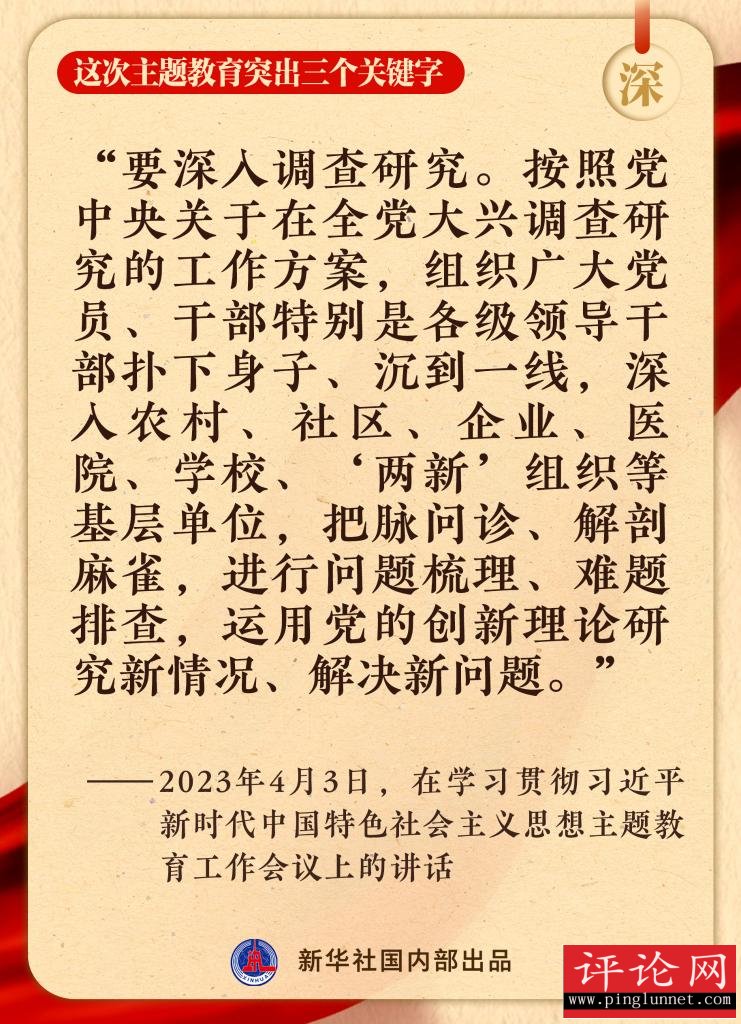 这次主题教育突出三个关键字
深
“要深入调查研究。按照党
中央关于在全党大兴调查研
究的工作方案，组织广大党
员、干部特别是各级领导干
部扑下身子、沉到一线，深
入农村、社区、企业、医
院、学校、‘两新’组织等
基层单位，把脉问诊、解剖
麻雀，进行问题梳理、难题
排查，运用党的创新理论研
究新情况、解决新问题。”
——2023年4月3日，在学习贯彻习近平
新时代中国特色社会主义思想主题教
育工作会议上的讲话
XINHUA
新华社国内部出品
评论网
www.pinglunnet.com